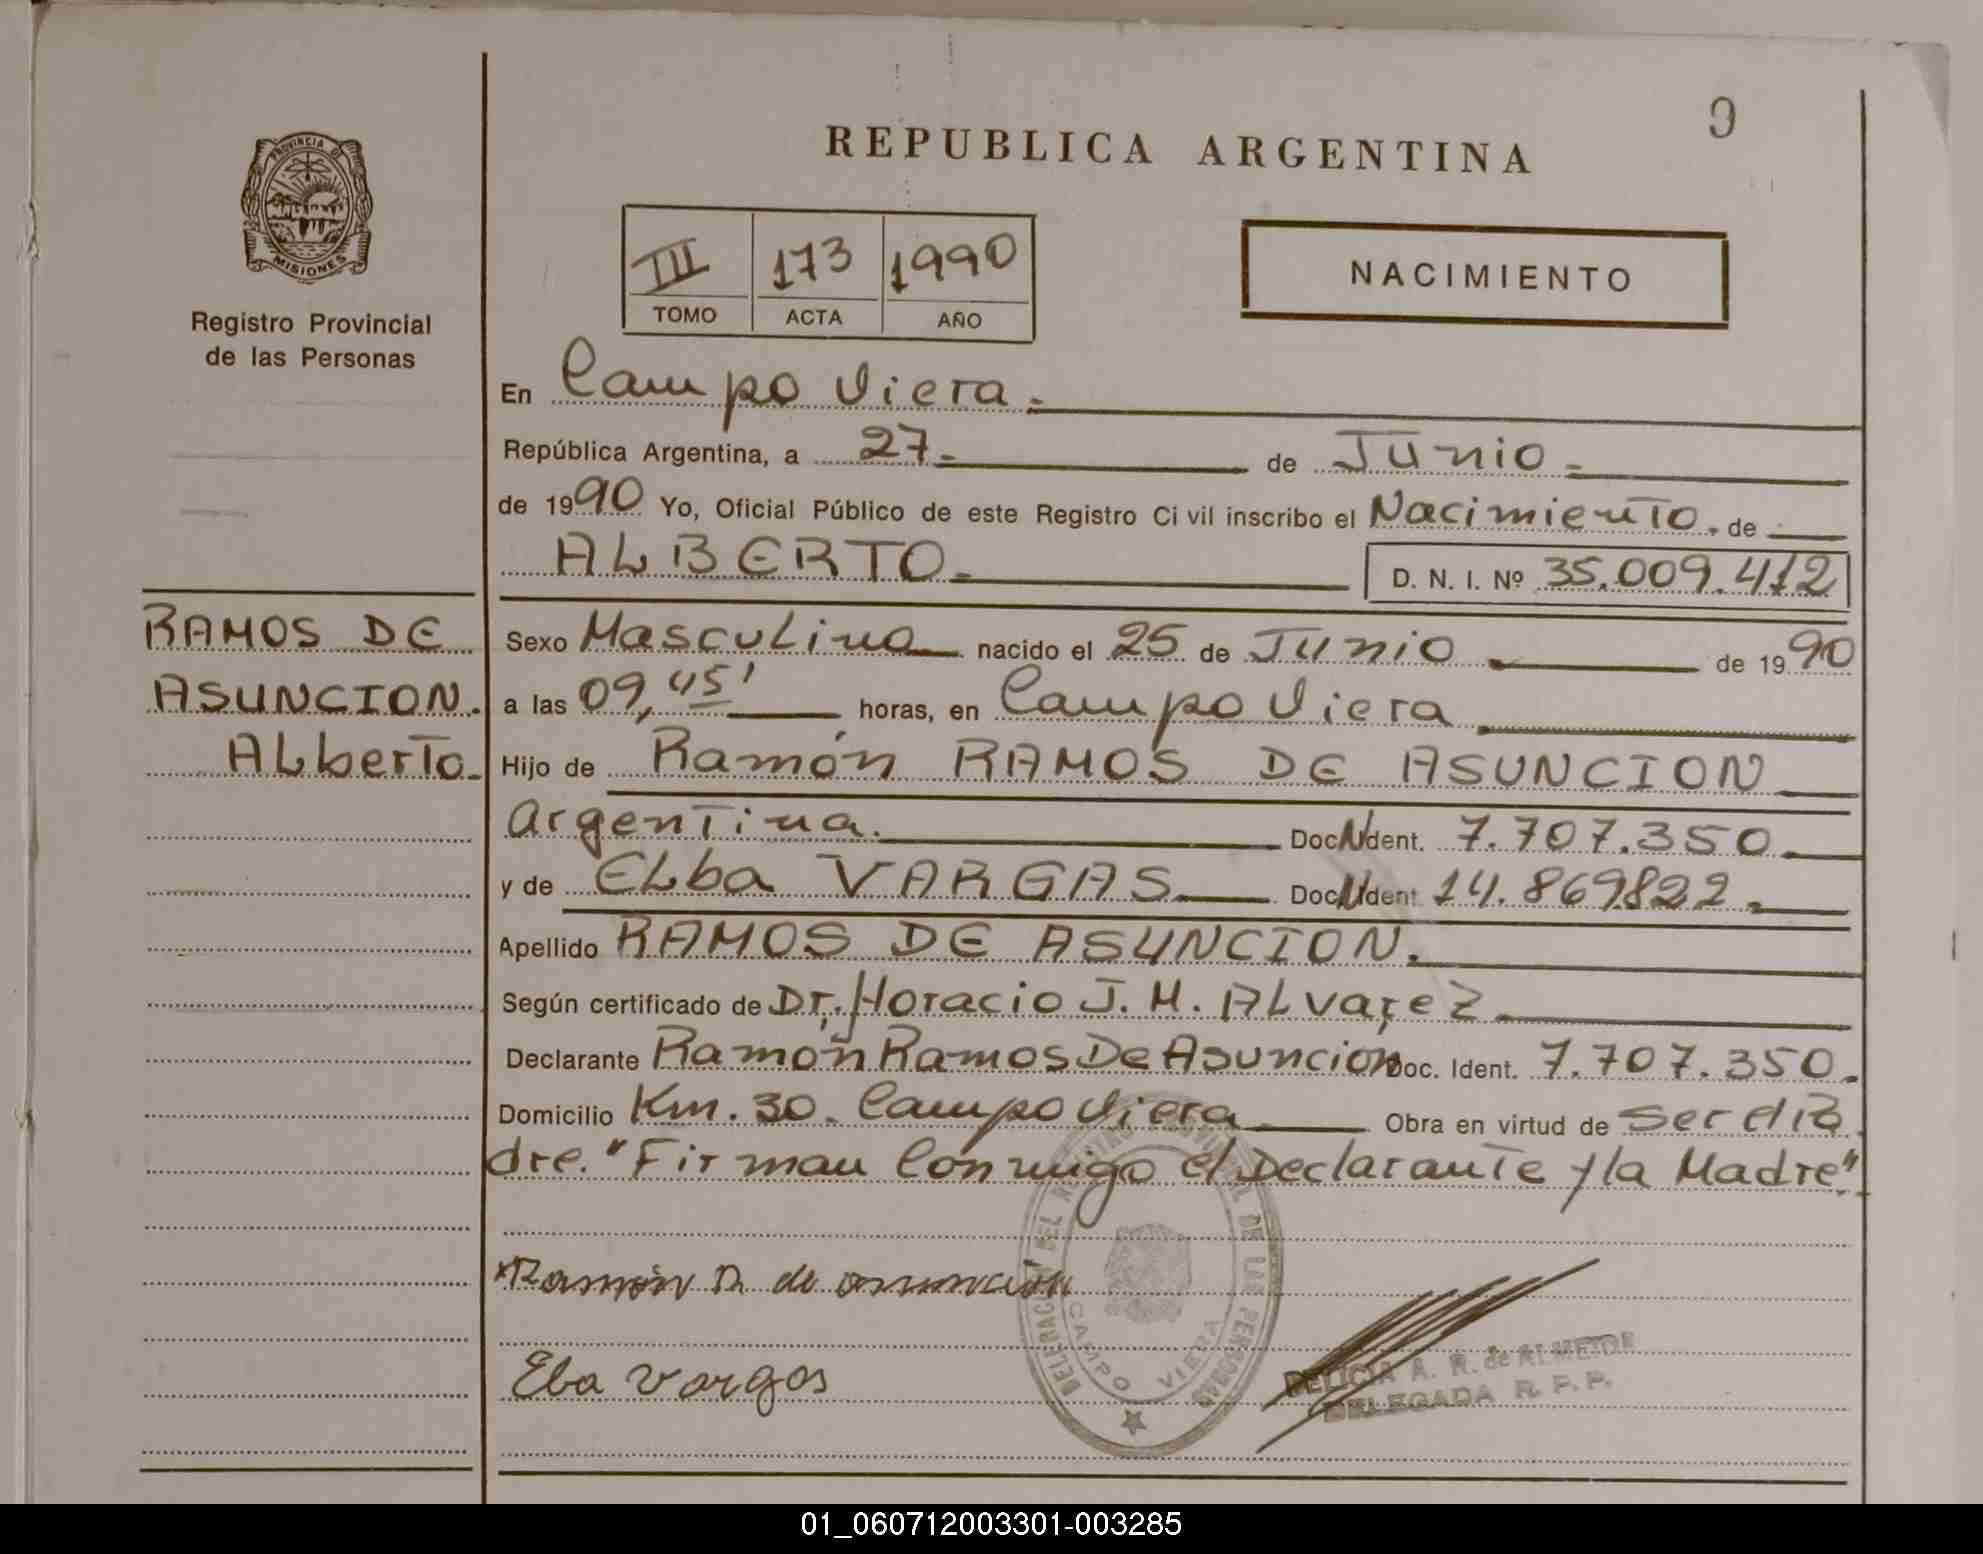 9
REPUBLICA ARGENTINA
PROVINCIA DE
MISIONES
Registro Provincial
de las Personas
III 173 1990
TOMO ACTA AÑO
NACIMIENTO
En Campo Viera.
República Argentina, a 27. de Junio.
de 1990 Yo, Oficial Público de este Registro Civil inscribo el Nacimiento. de
ALBERTO. D. N. I. Nº 35.009.412
RAMOS DE
ASUNCION.
Alberto.
Sexo Masculino nacido el 25 de Junio de 1990
a las 09,45' horas, en Campo Viera
Hijo de Ramón RAMOS DE ASUNCION
argentina. Doc. Ident. 7.707.350.
y de Elba VARGAS Doc. Ident. 14.869822.
Apellido RAMOS DE ASUNCION.
Según certificado de Dr. Horacio J. M. ALvarez
Declarante Ramón Ramos De Asuncion Doc. Ident. 7.707.350.
Domicilio Km. 30. Campo Viera Obra en virtud de ser el Pa
dre. "Firman Conmigo el Declarante y la Madre".
Ramón R. de asuncion
Elba Vargas
DELEGACION DEL REGISTRO PROVINCIAL DE LAS PERSONAS
CAMPO VIERA
DELICIA A. R. de ALMEIDA
DELEGADA R. P. P.
01_060712003301-003285